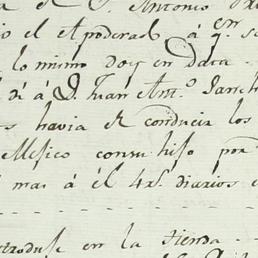 a el D. Antonio
io el Apoderado á qn. se
lo mismo doy en data
di á D. Juan Anto. Sanch
s havia de conducir los
Mexico con su hijo por
mas á él 4 rs. diarios
introduje en la tienda